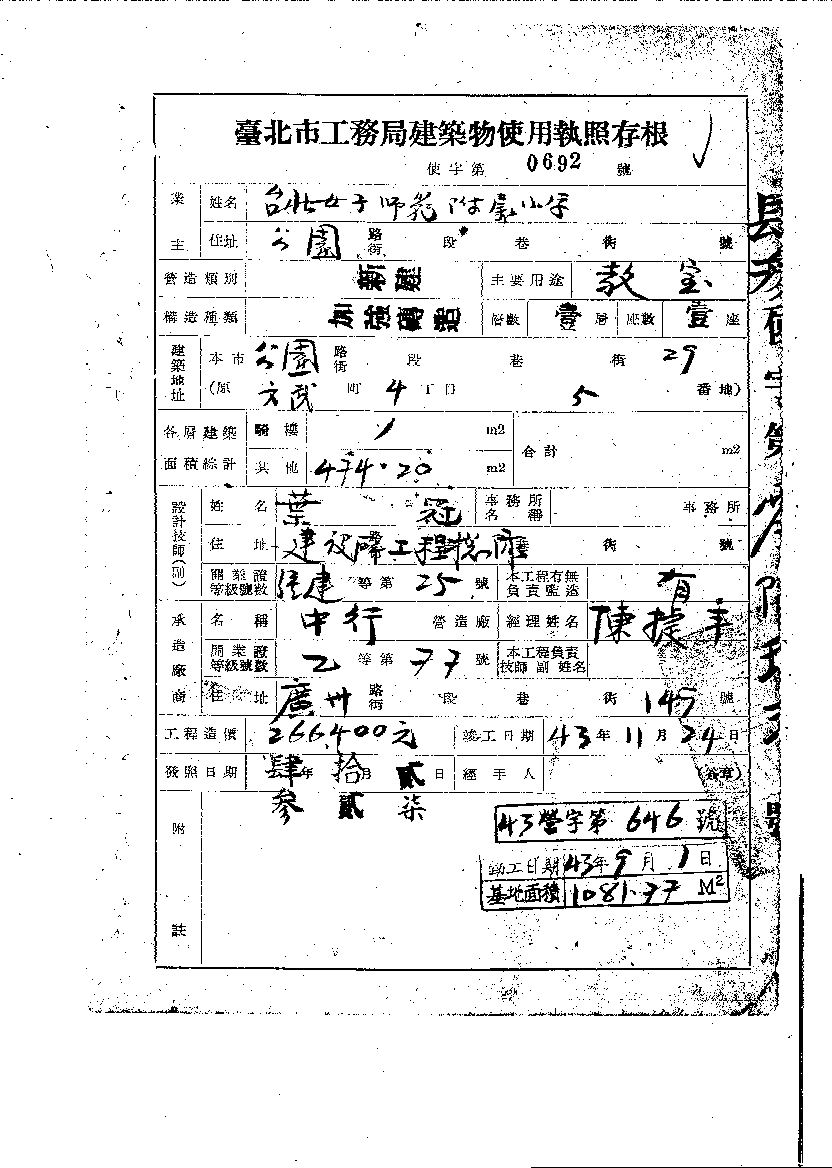 臺北市工務局建築物使用執照存根
使字第 0692 號
業主 姓名 台北女子師範附屬小学
住址 公園 路街 段 巷 街 號
營造類別 新建 主要用途 教室
構造種類 加強磚造 層數 壹 層 座數 壹 座
建築地址 本市 公園 路街 段 巷 街 29
(原 文武 町 4 丁目 5 番地)
各層建築面積綜計 騎樓 / m2 合計 m2
其他 474.20 m2
設計技師(副) 姓名 葉 冠 事務所名稱 事務所
住址 建設廳工程總隊 街 號
開業證等級號數 建 等第 25 號 本工程有無負責監造 有
承造廠商 名稱 中行 營造廠 經理姓名 陳捷
開業證等級號數 乙 等第 77 號 本工程負責技師副姓名
住址 廣州 路街 段 巷 街 145 號
工程造價 266,400元 竣工日期 43年11月24日
發照日期 肆參年 拾貳月 貳柒日 經手人 (簽章)
附註
43營字第 646 號
動工日期 43年9月1日
基地面積 1081.77 M²